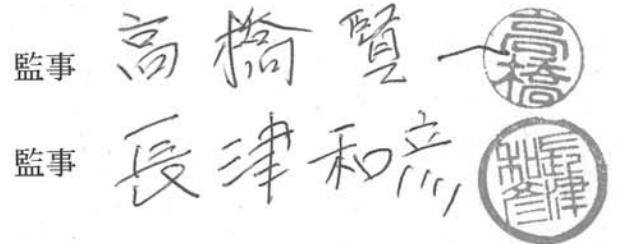 監事 高橋賢一 高橋
監事 長津和彦 長津和彦